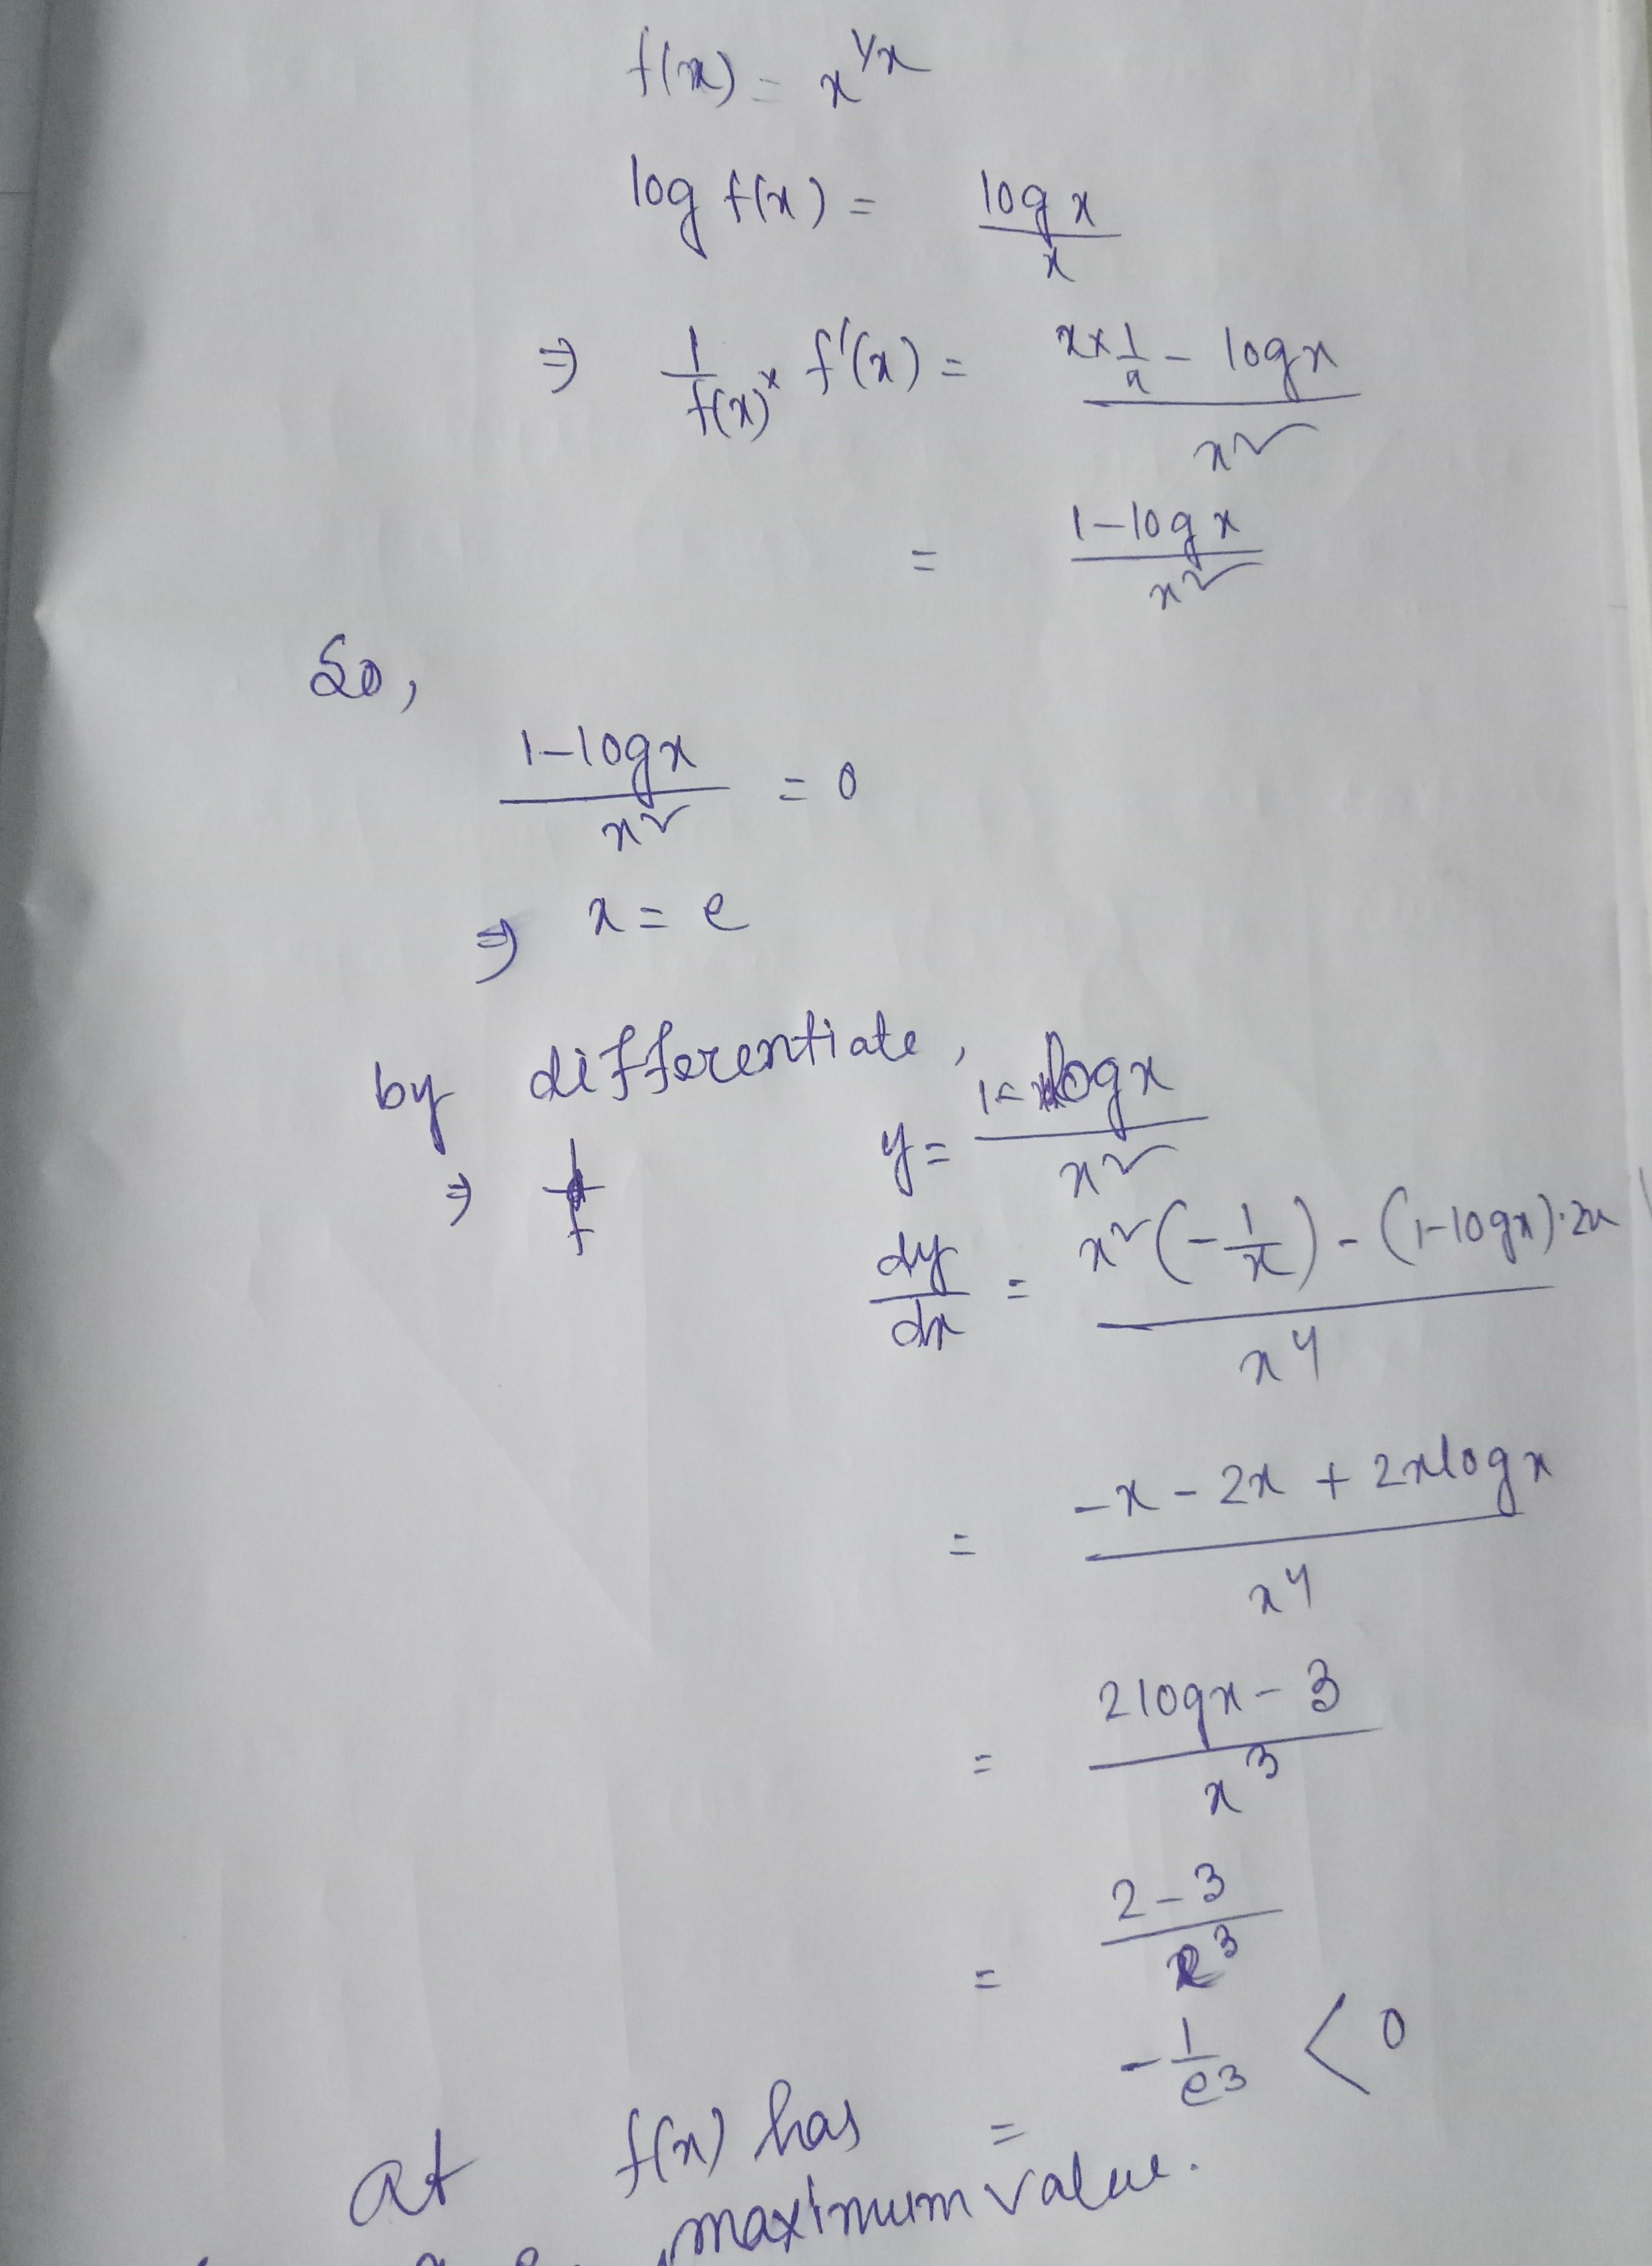 f(x) = x^{1/x}
log f(x) = \frac{log x}{x}
⇒ \frac{1}{f(x)} × f'(x) = \frac{x × \frac{1}{x} - log x}{x^2}
= \frac{1 - log x}{x^2}
So,
\frac{1 - log x}{x^2} = 0
⇒ x = e
by differentiate,
⇒ y = \frac{1 - log x}{x^2}
\frac{dy}{dx} = \frac{x^2(-\frac{1}{x}) - (1 - log x) · 2x}{x^4}
= \frac{-x - 2x + 2x log x}{x^4}
= \frac{2 log x - 3}{x^3}
= \frac{2 - 3}{e^3}
= -\frac{1}{e^3} < 0
at f(x) has
maximum value.